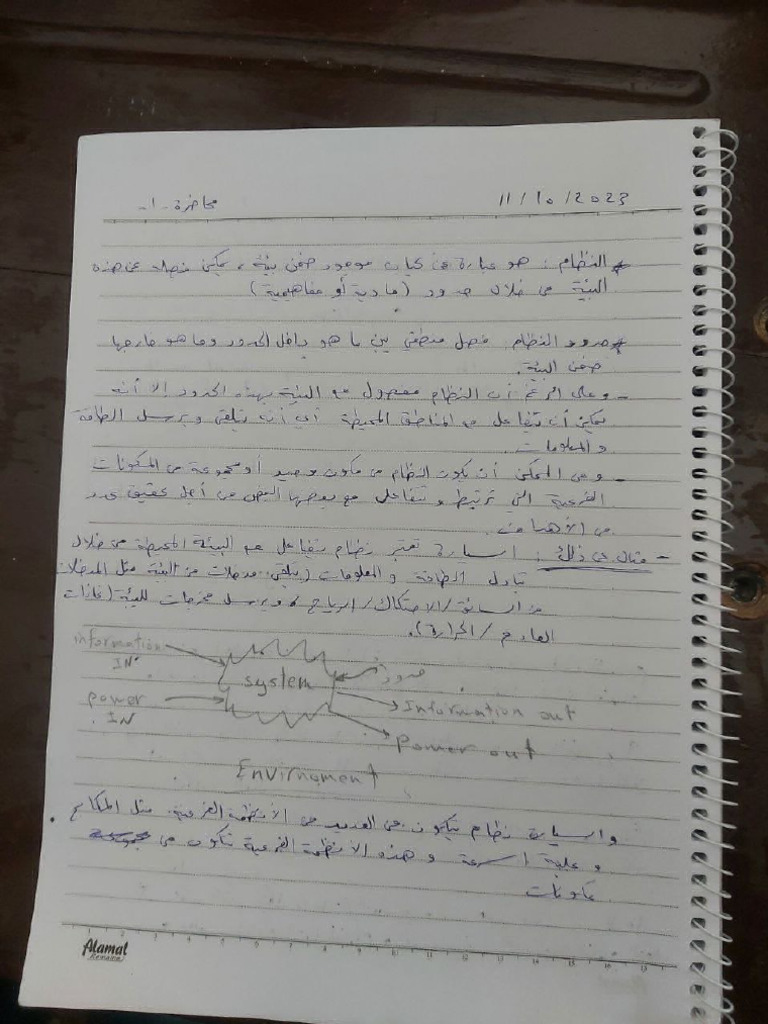 محاضرة -١- 11/10/2023
* النظام : هو عبارة عن كيان موجود ضمن بيئة ، يمكن فصله عن هذه
البيئة من خلال حدود (مادية أو مفاهيمية)
* حدود النظام : فصل منطقي بين ما هو داخل الحدود وما هو خارجها
ضمن البيئة.
- وعلى الرغم أن النظام مفصول مع البيئة بهذه الحدود إلا أنه
يمكن أن يتفاعل مع المناطق المحيطة أي أنه يتلقى ويرسل الطاقة
والمعلومات.
- ومن الممكن أن يكون النظام من مكون وحيد أو مجموعة من المكونات
الفرعية التي ترتبط و تتفاعل مع بعضها البعض من أجل تحقيق عدد
من الأهداف.
- مثال عن ذلك : السيارة تعتبر نظام يتفاعل مع البيئة المحيطة من خلال
تبادل الطاقة والمعلومات (يتلقى مدخلات من البيئة مثل المدخلات
من السائق / الاحتكاك / الرياح ، ويرسل مخرجات للبيئة (غازات
العادم / الحرارة).
information
IN
system
حدود
power
IN
Information out
power out
Envirnament
والسيارة نظام يتكون من العديد من الأنظمة الفرعية مثل المكابح
وعلبة السرعة وهذه الأنظمة الفرعية تتكون من
مكونات
Alamal